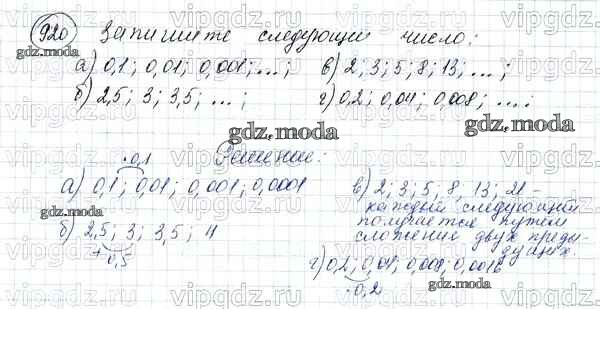 920 Запишите следующий число:
а) 0,1; 0,01; 0,001; ...; в) 2; 3; 5; 8; 13; ...;
б) 2,5; 3; 3,5; ...; г) 0,2; 0,04; 0,008; ....
Решение:
·0,1
а) 0,1; 0,01; 0,001; 0,0001
б) 2,5; 3; 3,5; 4
+0,5
в) 2; 3; 5; 8, 13; 21 –
каждый следующий
получается путем
сложения двух преды-
дущих.
г) 0,2; 0,04; 0,008; 0,0016
·0,2
gdz.moda
gdz.moda
gdz.moda
gdz.moda
gdz.moda
vipgdz.vip